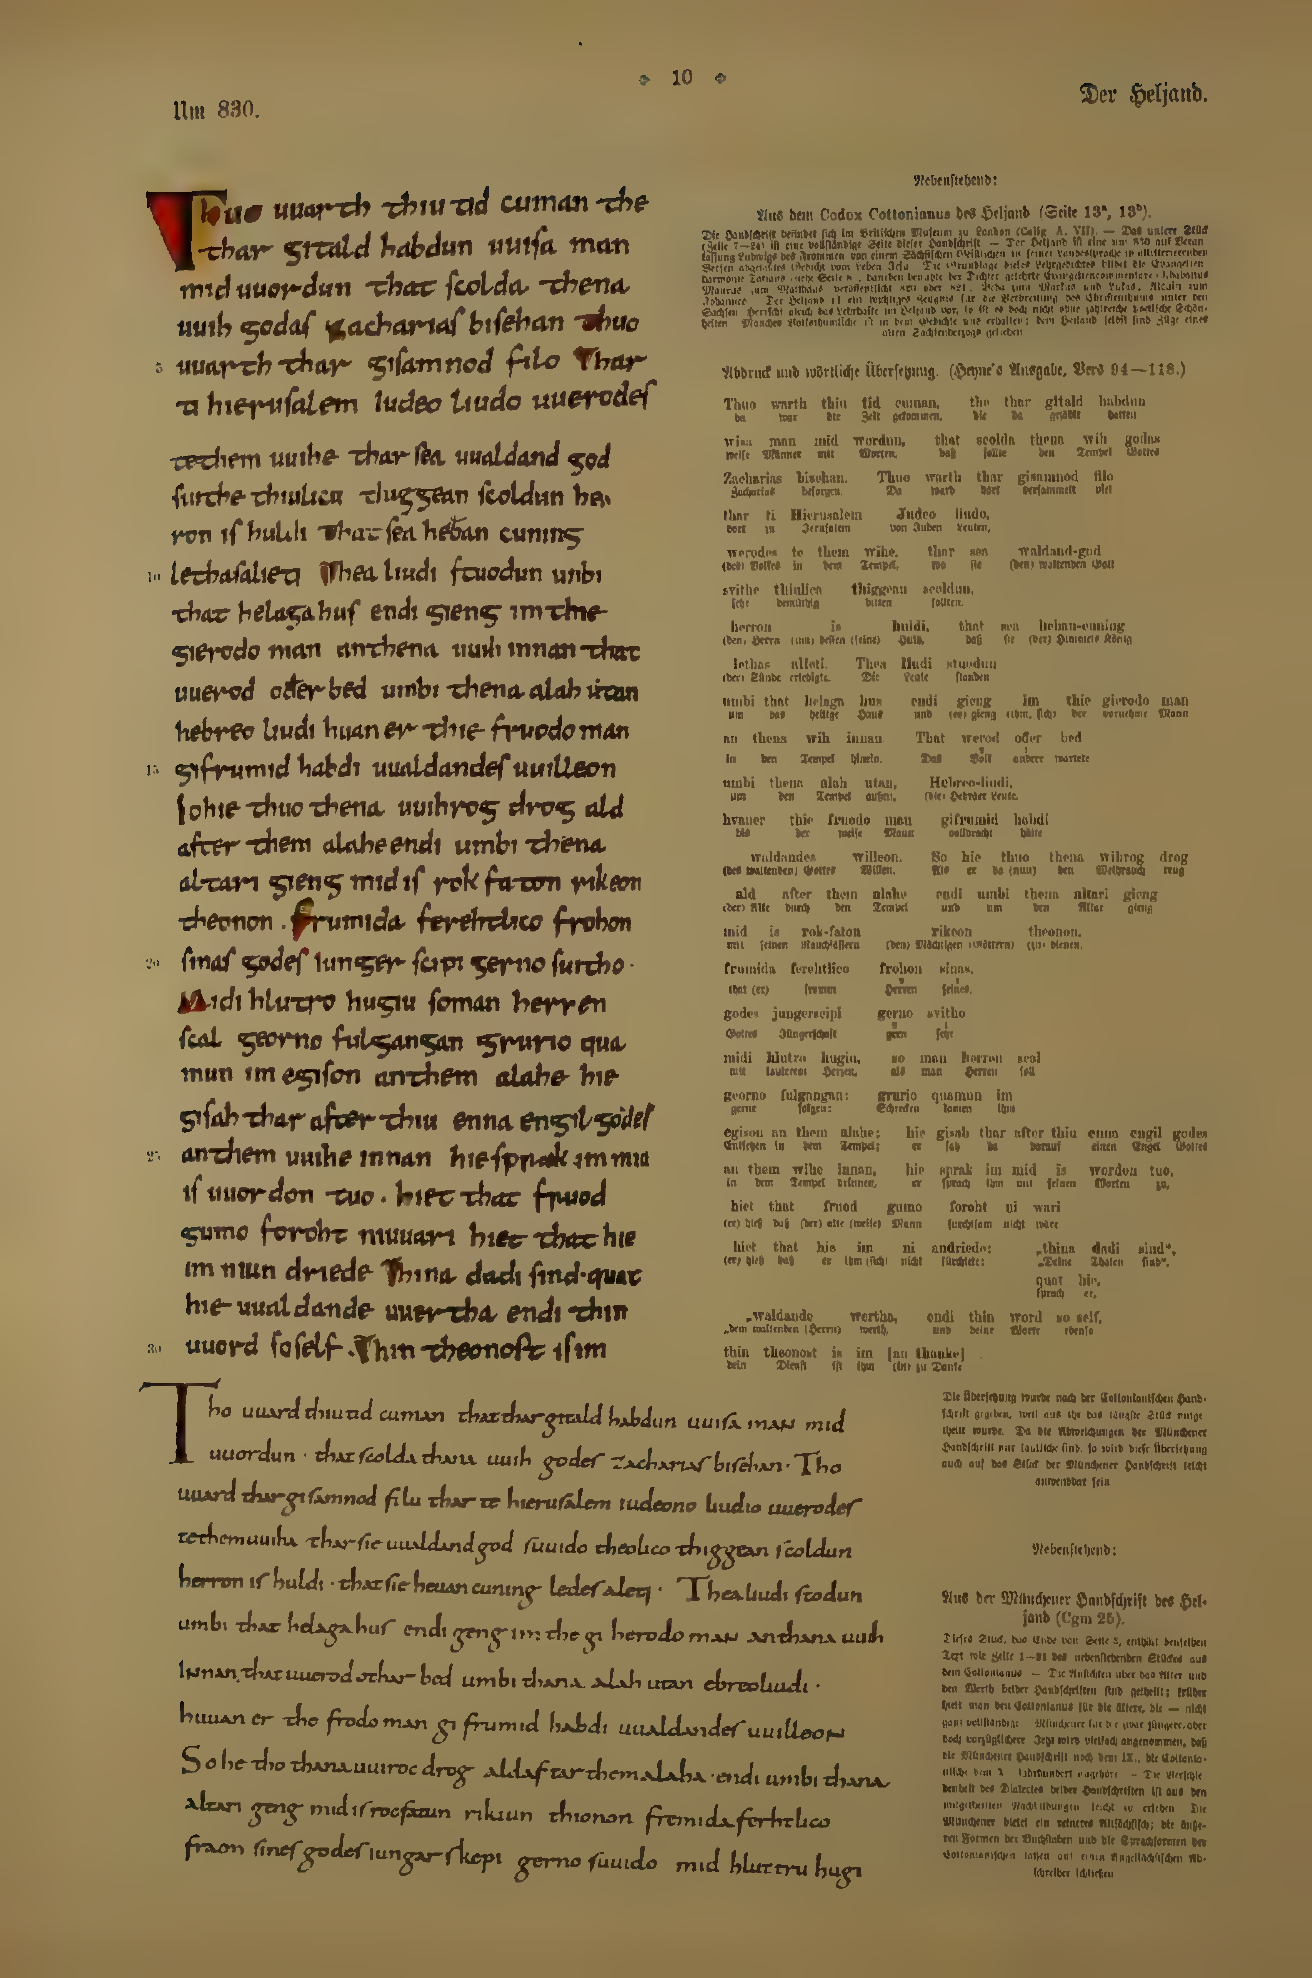 10
Um 830.
Der Heljand.
Thuo uuarth thiu tid cuman the
thar gitald habdun uuisa man
mid uuordun that scolda thena
uuih godas zacharias bisehan Thuo
5 uuarth thar gisamnod filo Thar
ti hierusalem Iudeo liudo uuerodes
tethem uuihe thar sea uualdand god
suithe thiulico thiggean scoldun her
ron is huldi That sea heban cuning
10 lethas alieti Thea liudi stuodun umbi
that helaga hus endi gieng im thie
gierodo man an thena uuih innan that
uuerod oðer bed umbi thena alah utan
hebreo liudi huan er thie fruodo man
15 gifrumid habdi uualdandes uuilleon
So hie thuo thena uuihrog drog ald
after them alahe endi umbi thena
altari gieng mid is rokfaton rikeon
theonon. frumida ferehtlico frohon
20 sinas godes Iungerscipi gerno suitho.
Midi hlutro hugiu so man herren
scal georno fulgangan grurio qua
mun im egison an them alahe hie
gisah thar after thiu enna engil godes
25 an them uuihe innan hie sprak im mid
is uuordon tuo. hiet that fruod
gumo foroht ni uuari hiet that hie
im ni an driede Thina dadi sind. quat
hie uualdande uuertha endi thin
30 uuord so self. Thin theonost is im
Tho uuard thiu tid cuman that thar gitald habdun uuisa man mid
uuordun. that scolda thana uuih godes zacharias bisehan. Tho
uuard thar gisamnod filu thar te hierusalem iudeono liudio uuerodes
te them uuiha thar sie uualdand god suuido theolico thiggean scoldun
herron is huldi. that sie heuan cuning ledes aleti. Thea liudi stodun
umbi that helaga hus endi geng im the gi herodo man an thana uuih
Innan. that uuerod othar bed umbi thana alah utan ebreo liudi.
huuan er the frodo man gi frumid habdi uualdandes uuilleon
So he tho thana uuiroc drog ald aftar them alaha. endi umbi thana
altari geng mid is rocfatun rikiun thionon fremida ferhtlico
fraon sines godes iungarskepi gerno suuido mid hluttru hugi
Nebenstehend:
Aus dem Codox Cottonianus des Heljand (Seite 13ᵃ, 13ᵇ).
Die Handschrift befindet sich im Britischen Museum zu London (Calig. A. VII). — Das untere Stück
(Zeile 7—24) ist eine vollständige Seite dieser Handschrift — Der Heljand ist eine um 830 auf Veran-
Abdruck und wörtliche Übersetzung. (Heyne's Ausgabe, Vers 94—118.)
Thuo warth thiu tid cuman, the thar gitald habdun
da war die Zeit gekommen, die da gezählt hatten
wisa man mid wordun, that scolda thena wih godas
weise Männer mit Worten, daß sollte den Tempel Gottes
Zacharias bisehan. Thuo warth thar gisamnod filo
Zacharias besorgen. Da ward dort versammelt viel
thar ti Hierusalem Judeo liudo,
dort zu Jerusalem von Juden Leuten,
werodes te them wihe, thar sea waldand-god
(des) Volkes in dem Tempel, wo sie (den) waltenden Gott
svithe thiulico thiggean scoldun,
sehr demüthig bitten sollten,
herron is huldi, that sea heban-cuning
(den) Herrn (um) dessen (seine) Huld, daß sie (der) Himmels König
lethas alieti. Thea liudi stuodun
(der) Sünde erledigte. Die Leute standen
umbi that helaga hus endi gieng im thie gierodo man
um das heilige Haus und (es) gieng (ihm, sich) der vornehme Mann
an thena wih innan That werod oðer bed
in den Tempel hinein. Das Volk andere wartete
umbi thena alah utan, Hebreo-liudi,
um den Tempel außen, (die) Hebräer Leute,
hvaner thie fruodo man gifrumid habdi
bis der weise Mann vollbracht hätte
waldandes willeon. So hie thuo thena wihrog drog
(des waltenden) Gottes Willen. Als er da (nun) den Weihrauch trug
ald after them alahe endi umbi thena altari gieng
(der) Alte durch den Tempel und um den Altar gieng
mid is rok-faton rikeon theonon,
mit seinen Rauchfässern (dem) Mächtigen (Göttern) (zu) dienen,
frumida ferehtlico frohon sinas,
that (er) fromm Herren seines,
godes jungerscipi gerno svitho
Gottes Jüngerschaft gern sehr
midi hlutro hugiu, so man herren scal
mit lauterem Herzen, als man Herren soll
georno fulgangan: grurio quamun im
gerne folgen: Schrecken kamen ihm
egison an them alahe; hie gisah thar after thiu enna engil godes
Entsetzen in dem Tempel; er sah da darauf einen Engel Gottes
an them wihe innan, hie sprak im mid is wordon tuo,
in dem Tempel drinnen, er sprach ihm mit seinen Worten zu,
hiet that fruod gumo foroht ni wari
(er) hieß daß (der) alte (weise) Mann furchtsam nicht wäre
hiet that hie im ni andriede: „thina dadi sind“,
(er) hieß daß er ihm (sich) nicht fürchtete: „Deine Thaten sind“,
quat hie,
sprach er,
„waldande wertha, endi thin word so self,
„dem waltenden (Herrn) werth, und deine Worte ebenso
thin theonost is im [an thanke]
dein Dienst ist ihm (ihm zu Danke
Die Übersetzung wurde nach der Cottonianischen Hand-
schrift gegeben, weil aus ihr das längste Stück mitge-
theilt wurde. Da die Abweichungen der Münchener
Handschrift nur lautliche sind, so wird diese Übersetzung
auch auf das Stück der Münchener Handschrift leicht
anwendbar sein
Nebenstehend:
Aus der Münchener Handschrift des Hel-
jand (Cgm 25).
Dieses Stück, das Ende von Seite 3, enthält denselben
Text wie Zeile 1—21 des nebenstehenden Stückes aus
dem Cottonianus — Die Ansichten über das Alter und
den Werth beider Handschriften sind getheilt; früher
hielt man den Cottonianus für die ältere, die — nicht
ganz vollständige Münchener für die zwar jüngere, aber
doch vorzüglichere Jetzt wird vielfach angenommen, daß
die Münchener Handschrift noch dem IX., die Cottonia-
nische dem X. Jahrhundert angehöre — Die Verschie-
denheit des Dialectes beider Handschriften ist aus den
mitgetheilten Nachbildungen leicht zu ersehen Die
Münchener bietet ein reineres Altsächsisch; die äuße-
ren Formen der Buchstaben und die Sprachformen der
Cottonianischen lassen auf einen Angelsächsischen Ab-
schreiber schließen